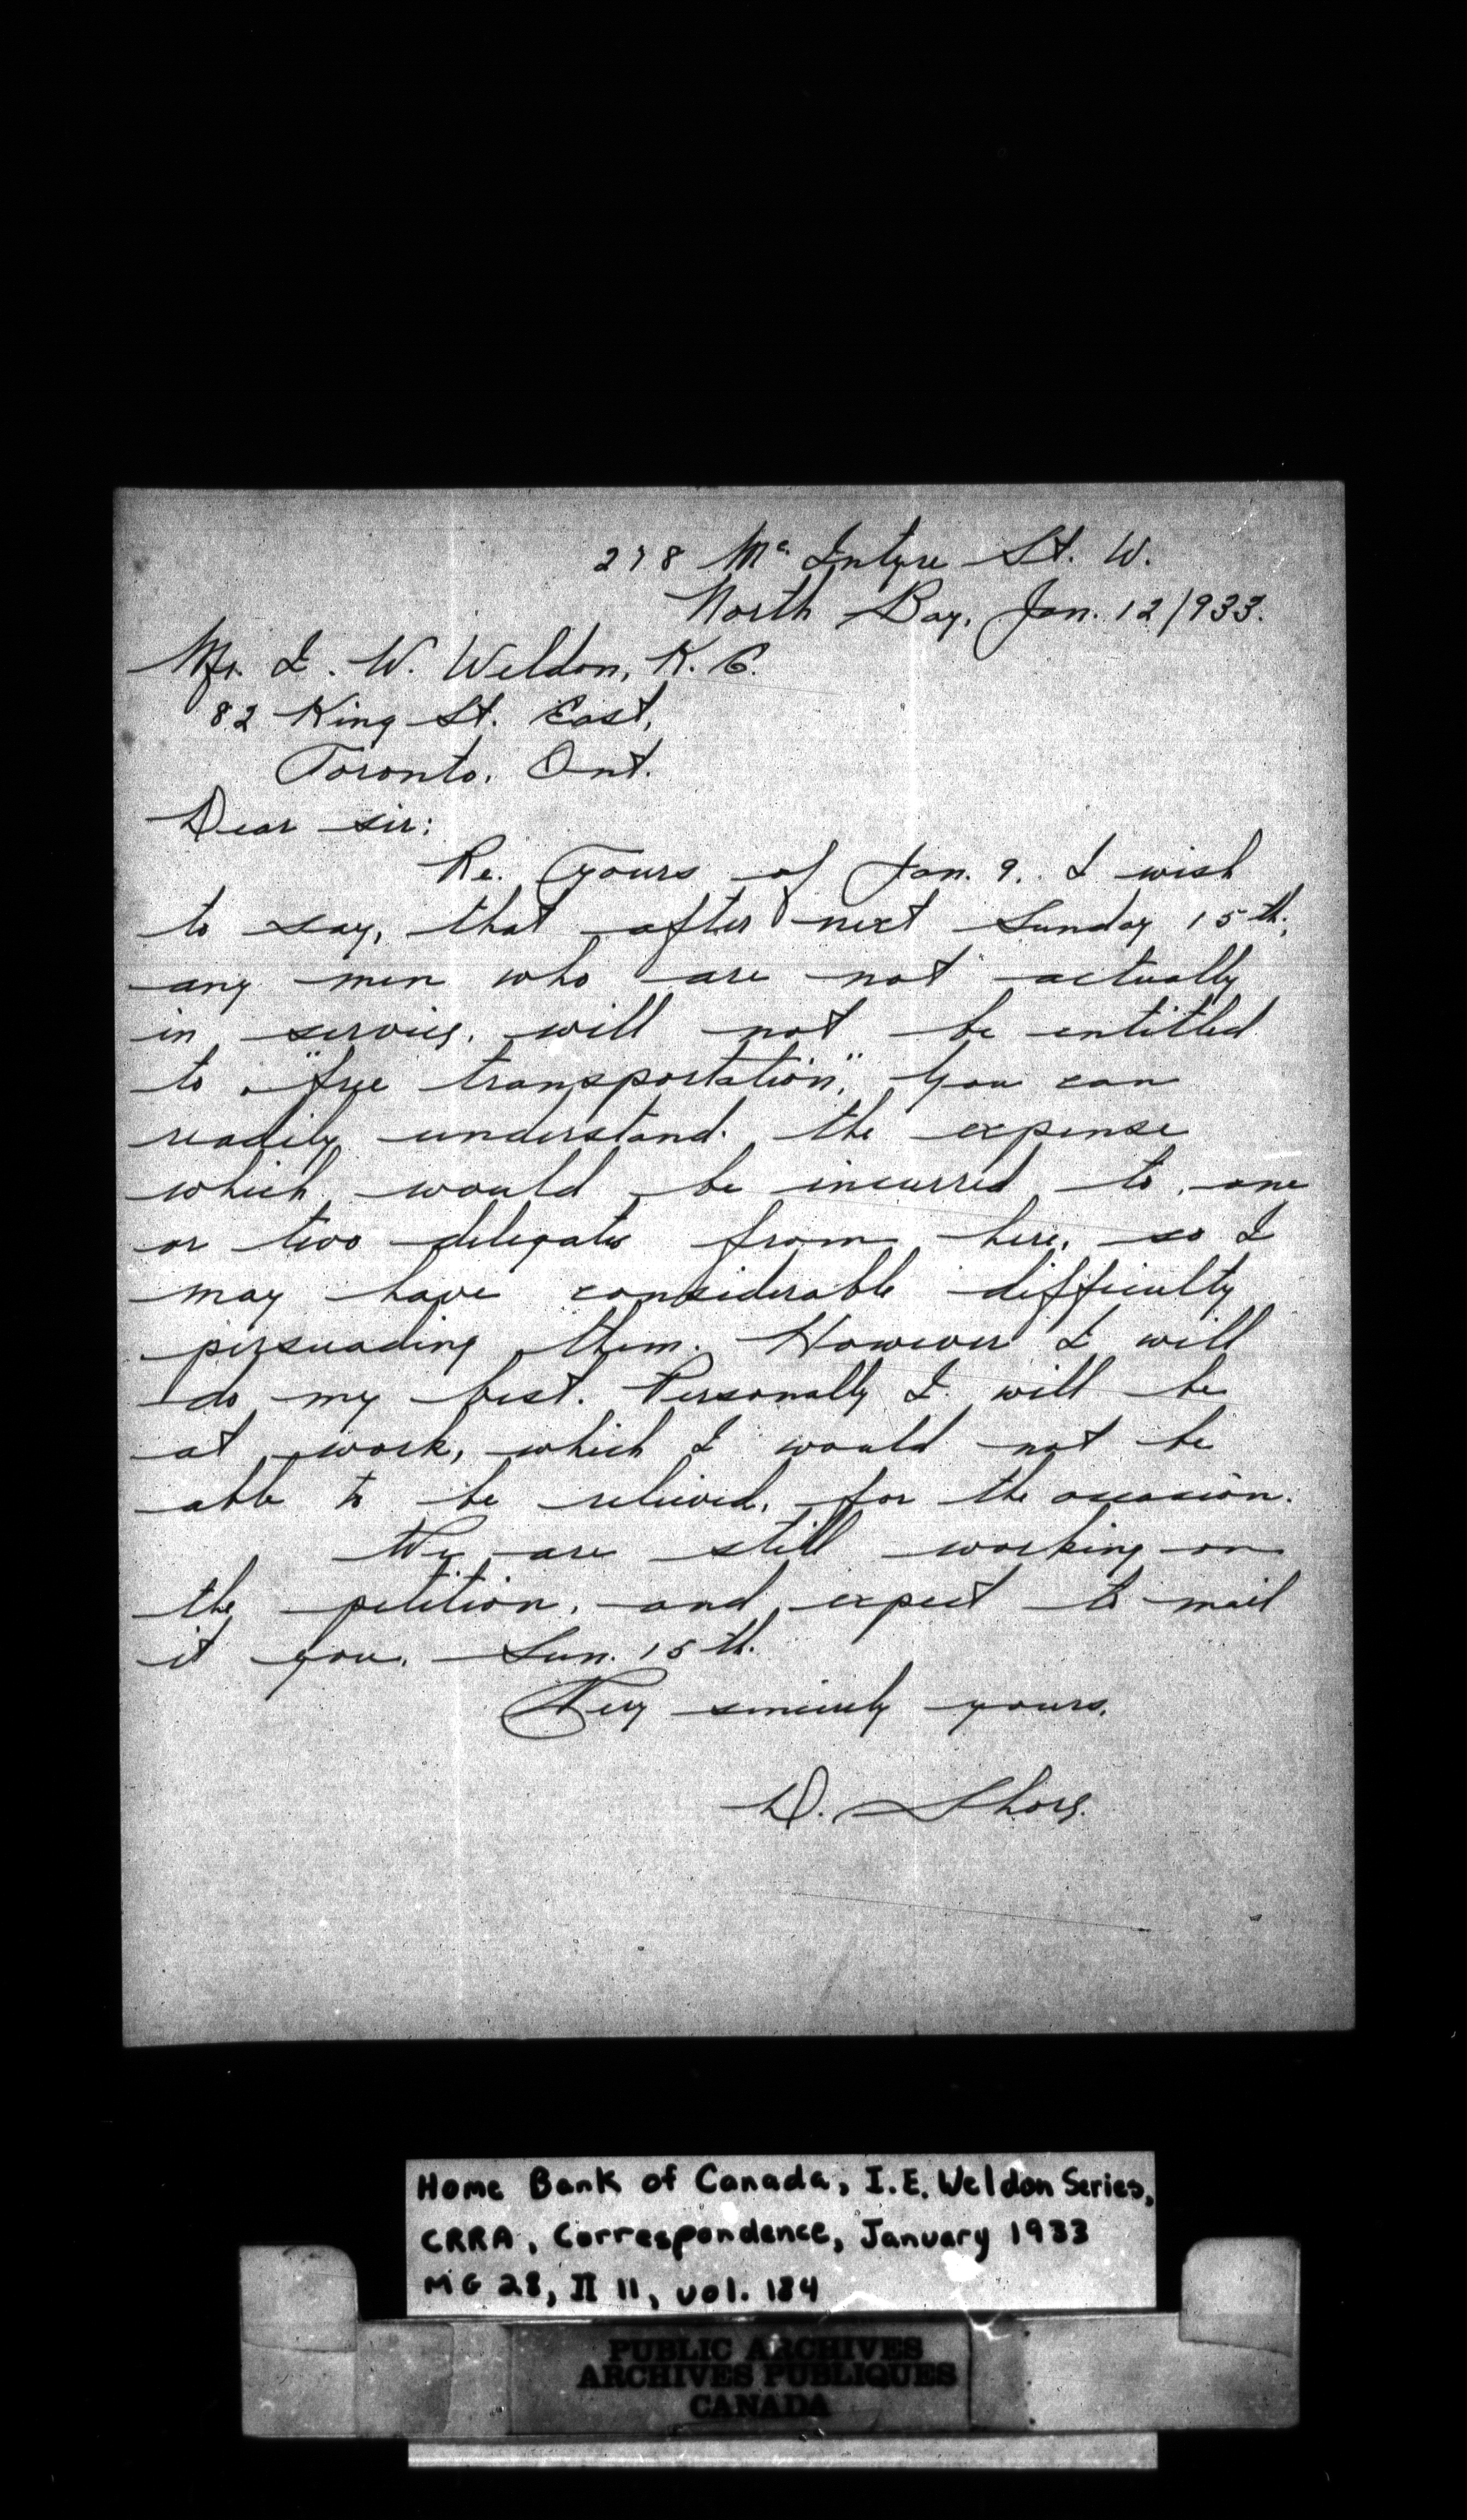 278 Mc Intyre St. W.
North Bay, Jan. 12/933.
Mr. I. W. Weldon, K. C.
82 King St. East,
Toronto, Ont.
Dear sir:
Re. Yours of Jan. 9. I wish
to say, that after next Sunday 15th,
any men who are not actually
in service, will not be entitled
to "free transportation", You can
readily understand the expense
which would be incurred to one
or two delegates from here, so I
may have considerable difficulty
persuading them. However I will
do my best. Personally I will be
at work, which I would not be
able to be relieved, for the occasion.
We are still working on
the petition, and expect to mail
it you, Sun. 15th.
Very sincerely yours,
D. Shore.
Home Bank of Canada, I.E. Weldon Series,
CRRA, Correspondence, January 1933
MG 28, II 11, vol. 184
PUBLIC ARCHIVES
ARCHIVES PUBLIQUES
CANADA